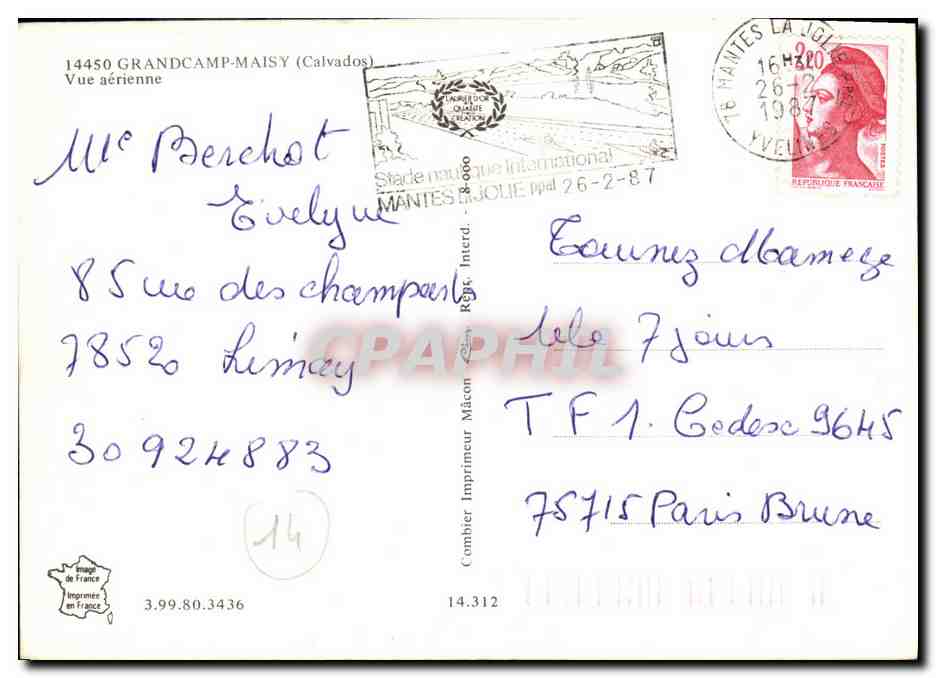 14450 GRANDCAMP-MAISY (Calvados)
Vue aérienne
LAURIER D'OR
QUALITÉ
CRÉATION
Stade nautique International
MANTES LA JOLIE ppal 26-2-87
78 MANTES LA JOLIE
16H
26-2
1987
YVELINES
2,20
POSTES
REPUBLIQUE FRANÇAISE
Mle Berchot
Evelyne
85 rue des champarts
78520 Limay
30924883
14
Tournez Manege
télé 7 jours
TF1. Cedex 9645
75715 Paris Brune
CPAPHIL
Combier Imprimeur Mâcon Repr. Interd. - 8-000
Image
de France
Imprimée
en France
3.99.80.3436
14.312